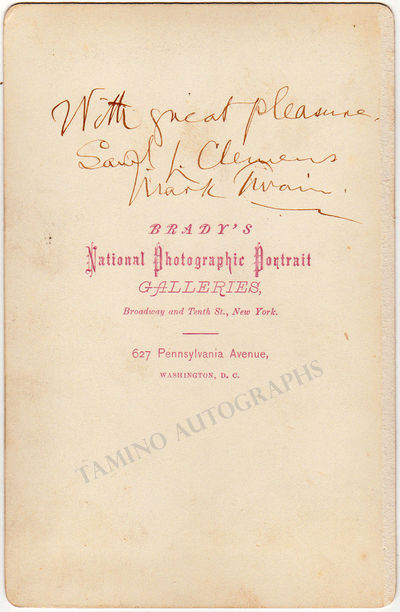 With great pleasure.
Saml L. Clemens
Mark Twain.
BRADY'S
National Photographic Portrait
GALLERIES,
Broadway and Tenth St., New York.
627 Pennsylvania Avenue,
WASHINGTON, D. C.
TAMINO AUTOGRAPHS